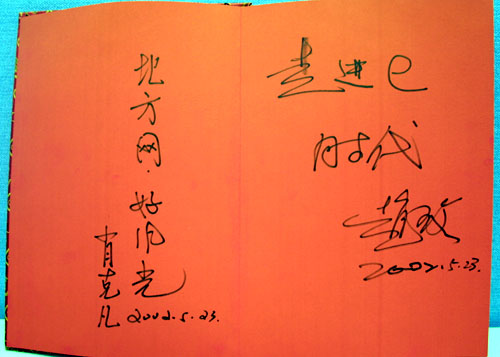 北方网·好风光
肖克凡
2002.5.23.
走进e
时代
赵玫
2002.5.23.